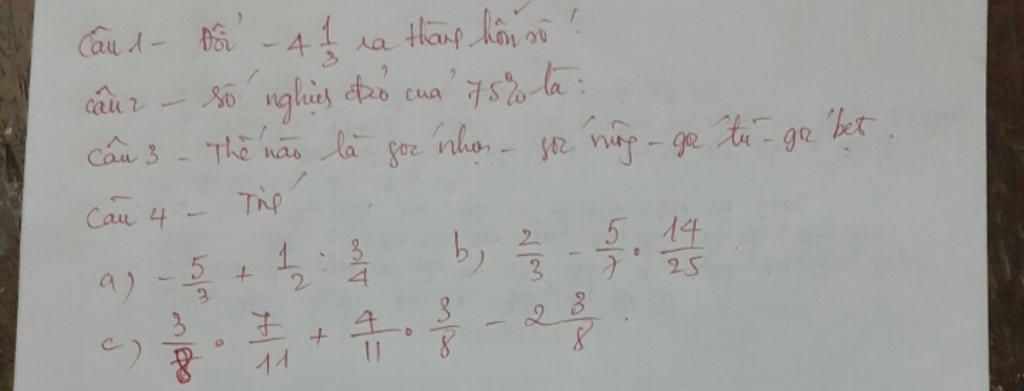 Câu 1 - Đổi - 4 1/3 ra thàng hỗn số.
câu 2 - số nghịch đảo của 75% là:
câu 3 - Thế nào là góc nhọn - góc vuông - góc tù - góc bẹt.
Câu 4 - Tính
a) - 5/3 + 1/2 : 3/4 b) 2/3 - 5/7 . 14/25
c) 3/8 . 7/11 + 4/11 . 3/8 - 2 3/8.